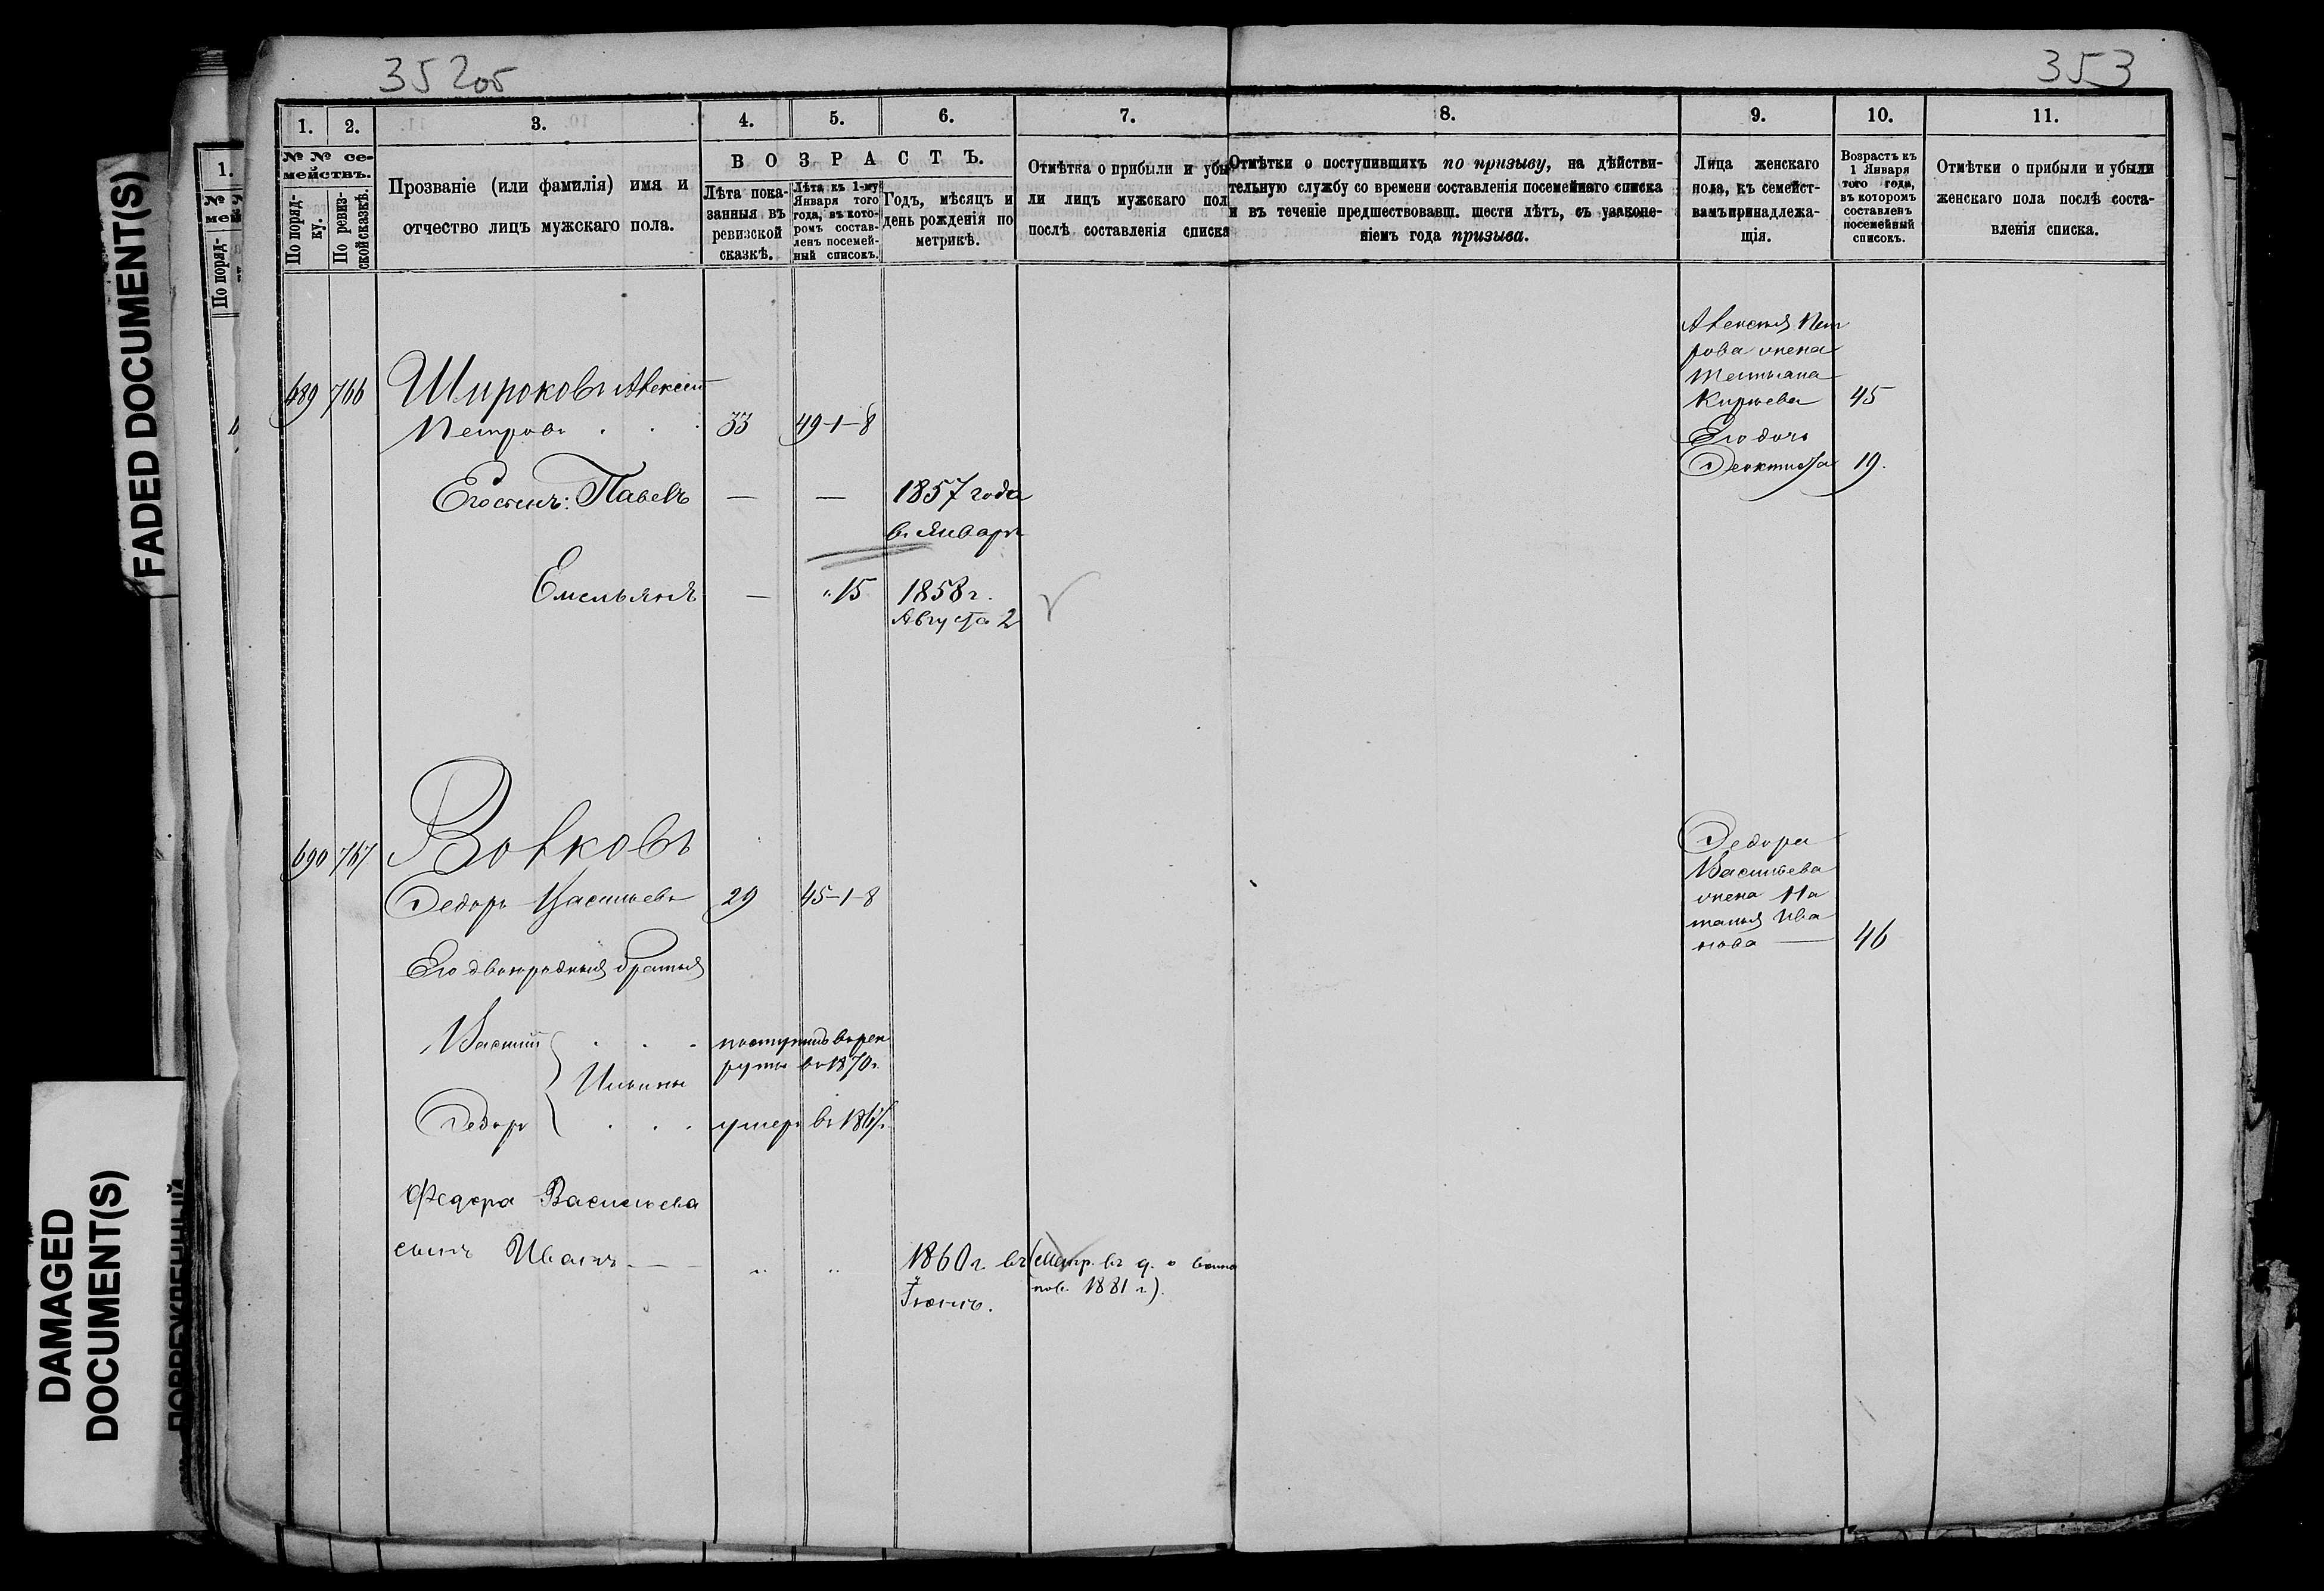 352об
353
FADED DOCUMENT(S)
DAMAGED
DOCUMENT(S)
1.
2.
3.
4.
5.
6.
7.
8.
9.
10.
11.
№№ се-
мействъ.
По поряд-
ку.
По ревиз-
ской сказкѣ.
Прозваніе (или фамилія) имя и
отчество лицъ мужскаго пола.
ВОЗРАСТЪ.
Лѣта пока-
занныя въ
ревизской
сказкѣ.
Лѣта къ 1-му
Января того
года, въ кото-
ромъ состав-
ленъ посемей-
ный списокъ.
Годъ, мѣсяцъ и
день рожденія по
метрикѣ.
Отмѣтка о прибыли и убы
ли лицъ мужскаго пол
послѣ составленія списка
Отмѣтки о поступившихъ по призыву, на дѣйстви-
тельную службу со времени составленія посемейнаго списка
и въ теченіе предшествовавш. шести лѣтъ, съ указоне-
ніемъ года призыва.
Лица женскаго
пола, къ семейст-
вамъ принадлежа-
щія.
Возрастъ къ
1 Января
того года,
въ которомъ
составленъ
посемейный
списокъ.
Отмѣтки о прибыли и убыли
женскаго пола послѣ соста-
вленія списка.
689 766 Широковъ Алексѣй
Петровъ . . . 33 49-1-8
Его сынъ: Павелъ — — 1857 года
въ Январѣ
Емельянъ — 15 1858 г.
Августа 2
Алексѣя Пет
рова жена
Татьяна
Кирѣева 45
Его дочь
Феоктиста 19.
690 767 Волковъ
Федоръ Васильевъ 29 45-1-8
Его двоюродныя братья
Василій . . . поступилъ въ рек
руты въ 1870 г.
Ильины
Федоръ . . . умеръ въ 1867 г.
Федора Васильева
сынъ Иванъ — — „ „ 1860 г. въ
Іюнѣ.
(Метр. въ д. о воин
пов. 1881 г.).
Федора
Васильева
жена На
талья Ива
нова — 46